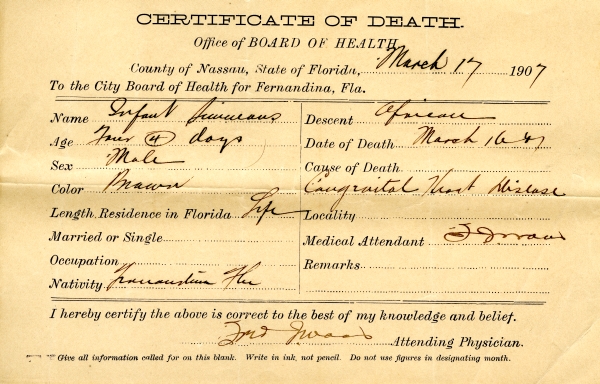 CERTIFICATE OF DEATH.
Office of BOARD OF HEALTH
County of Nassau, State of Florida, March 17 1907
To the City Board of Health for Fernandina, Fla.
Name Infant Simmons
Age Four (4) days
Sex Male
Color Brown
Length Residence in Florida Life
Married or Single
Occupation
Nativity Fernandina Fla
Descent African
Date of Death March 16
Cause of Death
Congenital Heart Disease
Locality
Medical Attendant
Remarks
I hereby certify the above is correct to the best of my knowledge and belief.
Attending Physician.
Give all information called for on this blank. Write in ink, not pencil. Do not use figures in designating month.